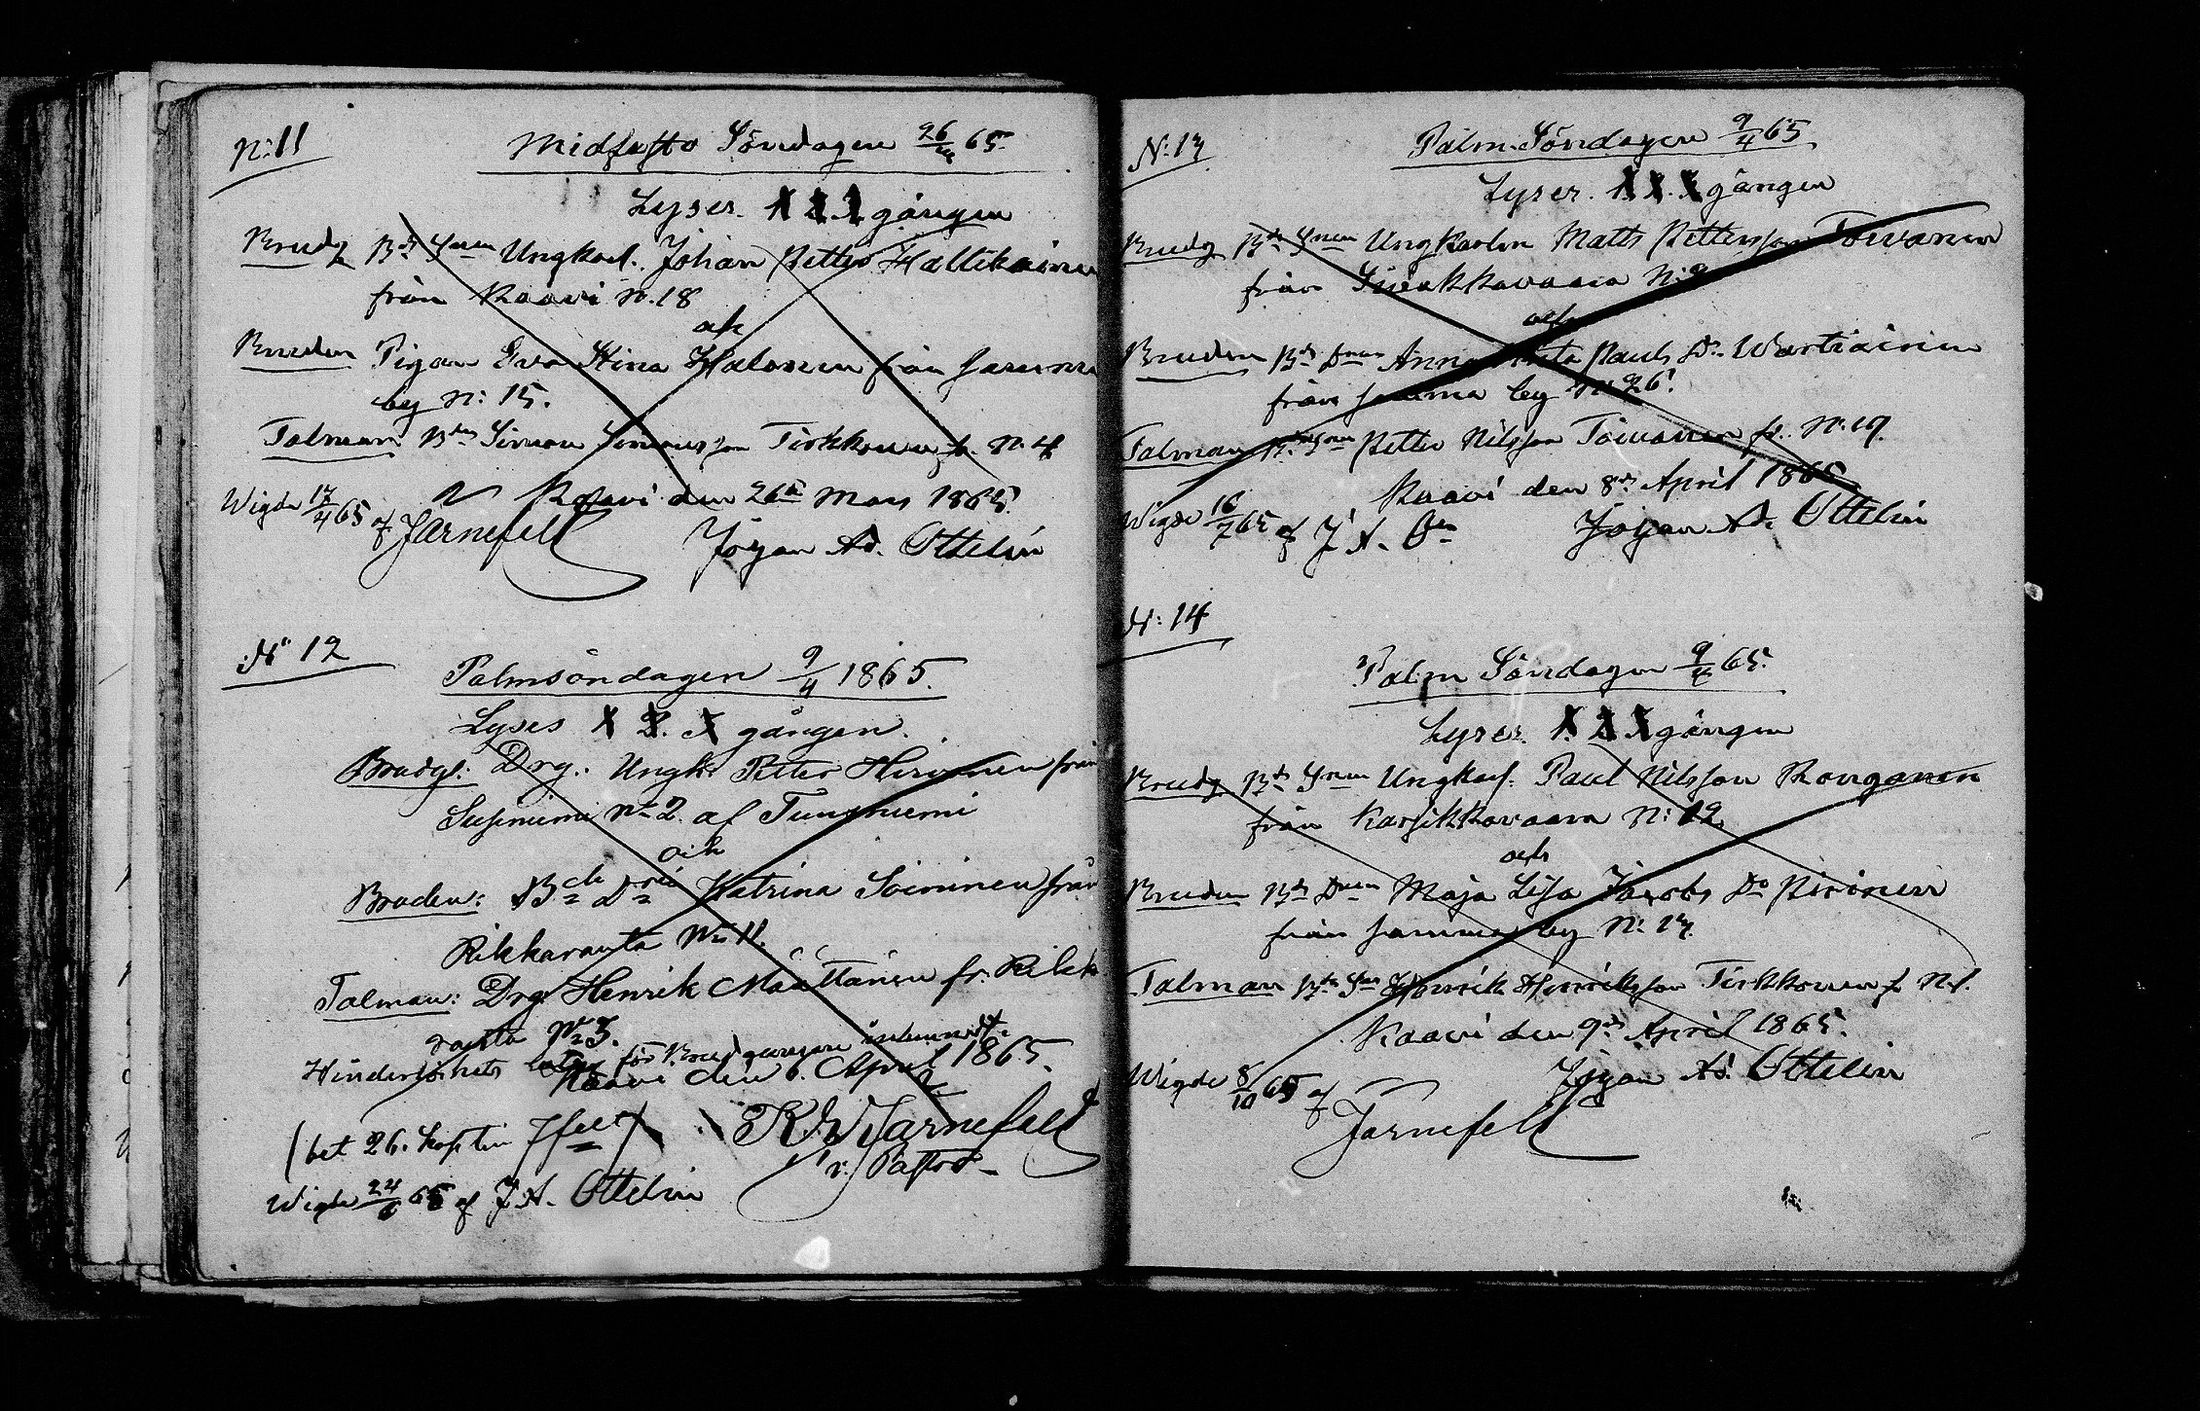 N:11
Midfasto Söndagen 26/3 65.
Lyses. 1 2 3 gången
Brudg Bd Snen Ungkarl. Johan Petter Hallikainen
från Kaavi N. 18
och
Bruden Pigan Eva Stina Halonen från samma
by N: 15.
Talman Bdn Simon Simonsson Tirkkonen fr. N. 4
Kaavi den 26de Mars 1865.
Wigde 17/4 65 af Järnefelt
Johan Ad. Ottelin
N: 12
Palmsöndagen 9/4 1865.
Lyses 1 2. 3 gången.
Brudg: Drg: Ungk. Petter Hirvonen från
Susiniemi No 2 af Tuusniemi
och
Bruden: Bde Dren Katrina Soininen från
Rikkaranta No 11.
Talman: Drg. Henrik Määttänen fr. Rikka
ranta No 3.
Hinderslöshets för Brudgummen inlemnadt.
Kaavi den 6. April 1865.
(bet 26. kop. till Jfelt)
K. W Järnefelt
v. Pastor
Wigde 24/6 65 af J A. Ottelin
N: 13
Palm. Söndagen 9/4 65
Lyses. 1. 2. 3 gången
Brudg Bd Snen Ungkarlen Matts Pettersson Toivanen
från Siikavaara N: 9
och
Bruden Bd Dren Anna Brita Pauls Dr. Wartiainen
från samma by N: 26.
Talman Bd Snen Petter Nilsson Toivanen fr. N: 19.
Kaavi den 8de April 1865
Wigde 16/7 65 af J A. On
Johan Ad. Ottelin
N: 14
Palm Söndagen 9/4 65.
Lyses. 1. 2 3 gången
Brudg Bd Snen Ungkarl. Paul Nilsson Rouganen
från Karsikkovaara N: 12
och
Bruden Bd Dren Maja Lisa Jacobs Dr Pirinen
från samma by N: 13.
Talman Bd Sn Henrik Henriksson Tirkkonen fr N. 1.
Kaavi den 9de April 1865.
Wigde 8/10 65 af Järnefelt
Johan Ad. Ottelin